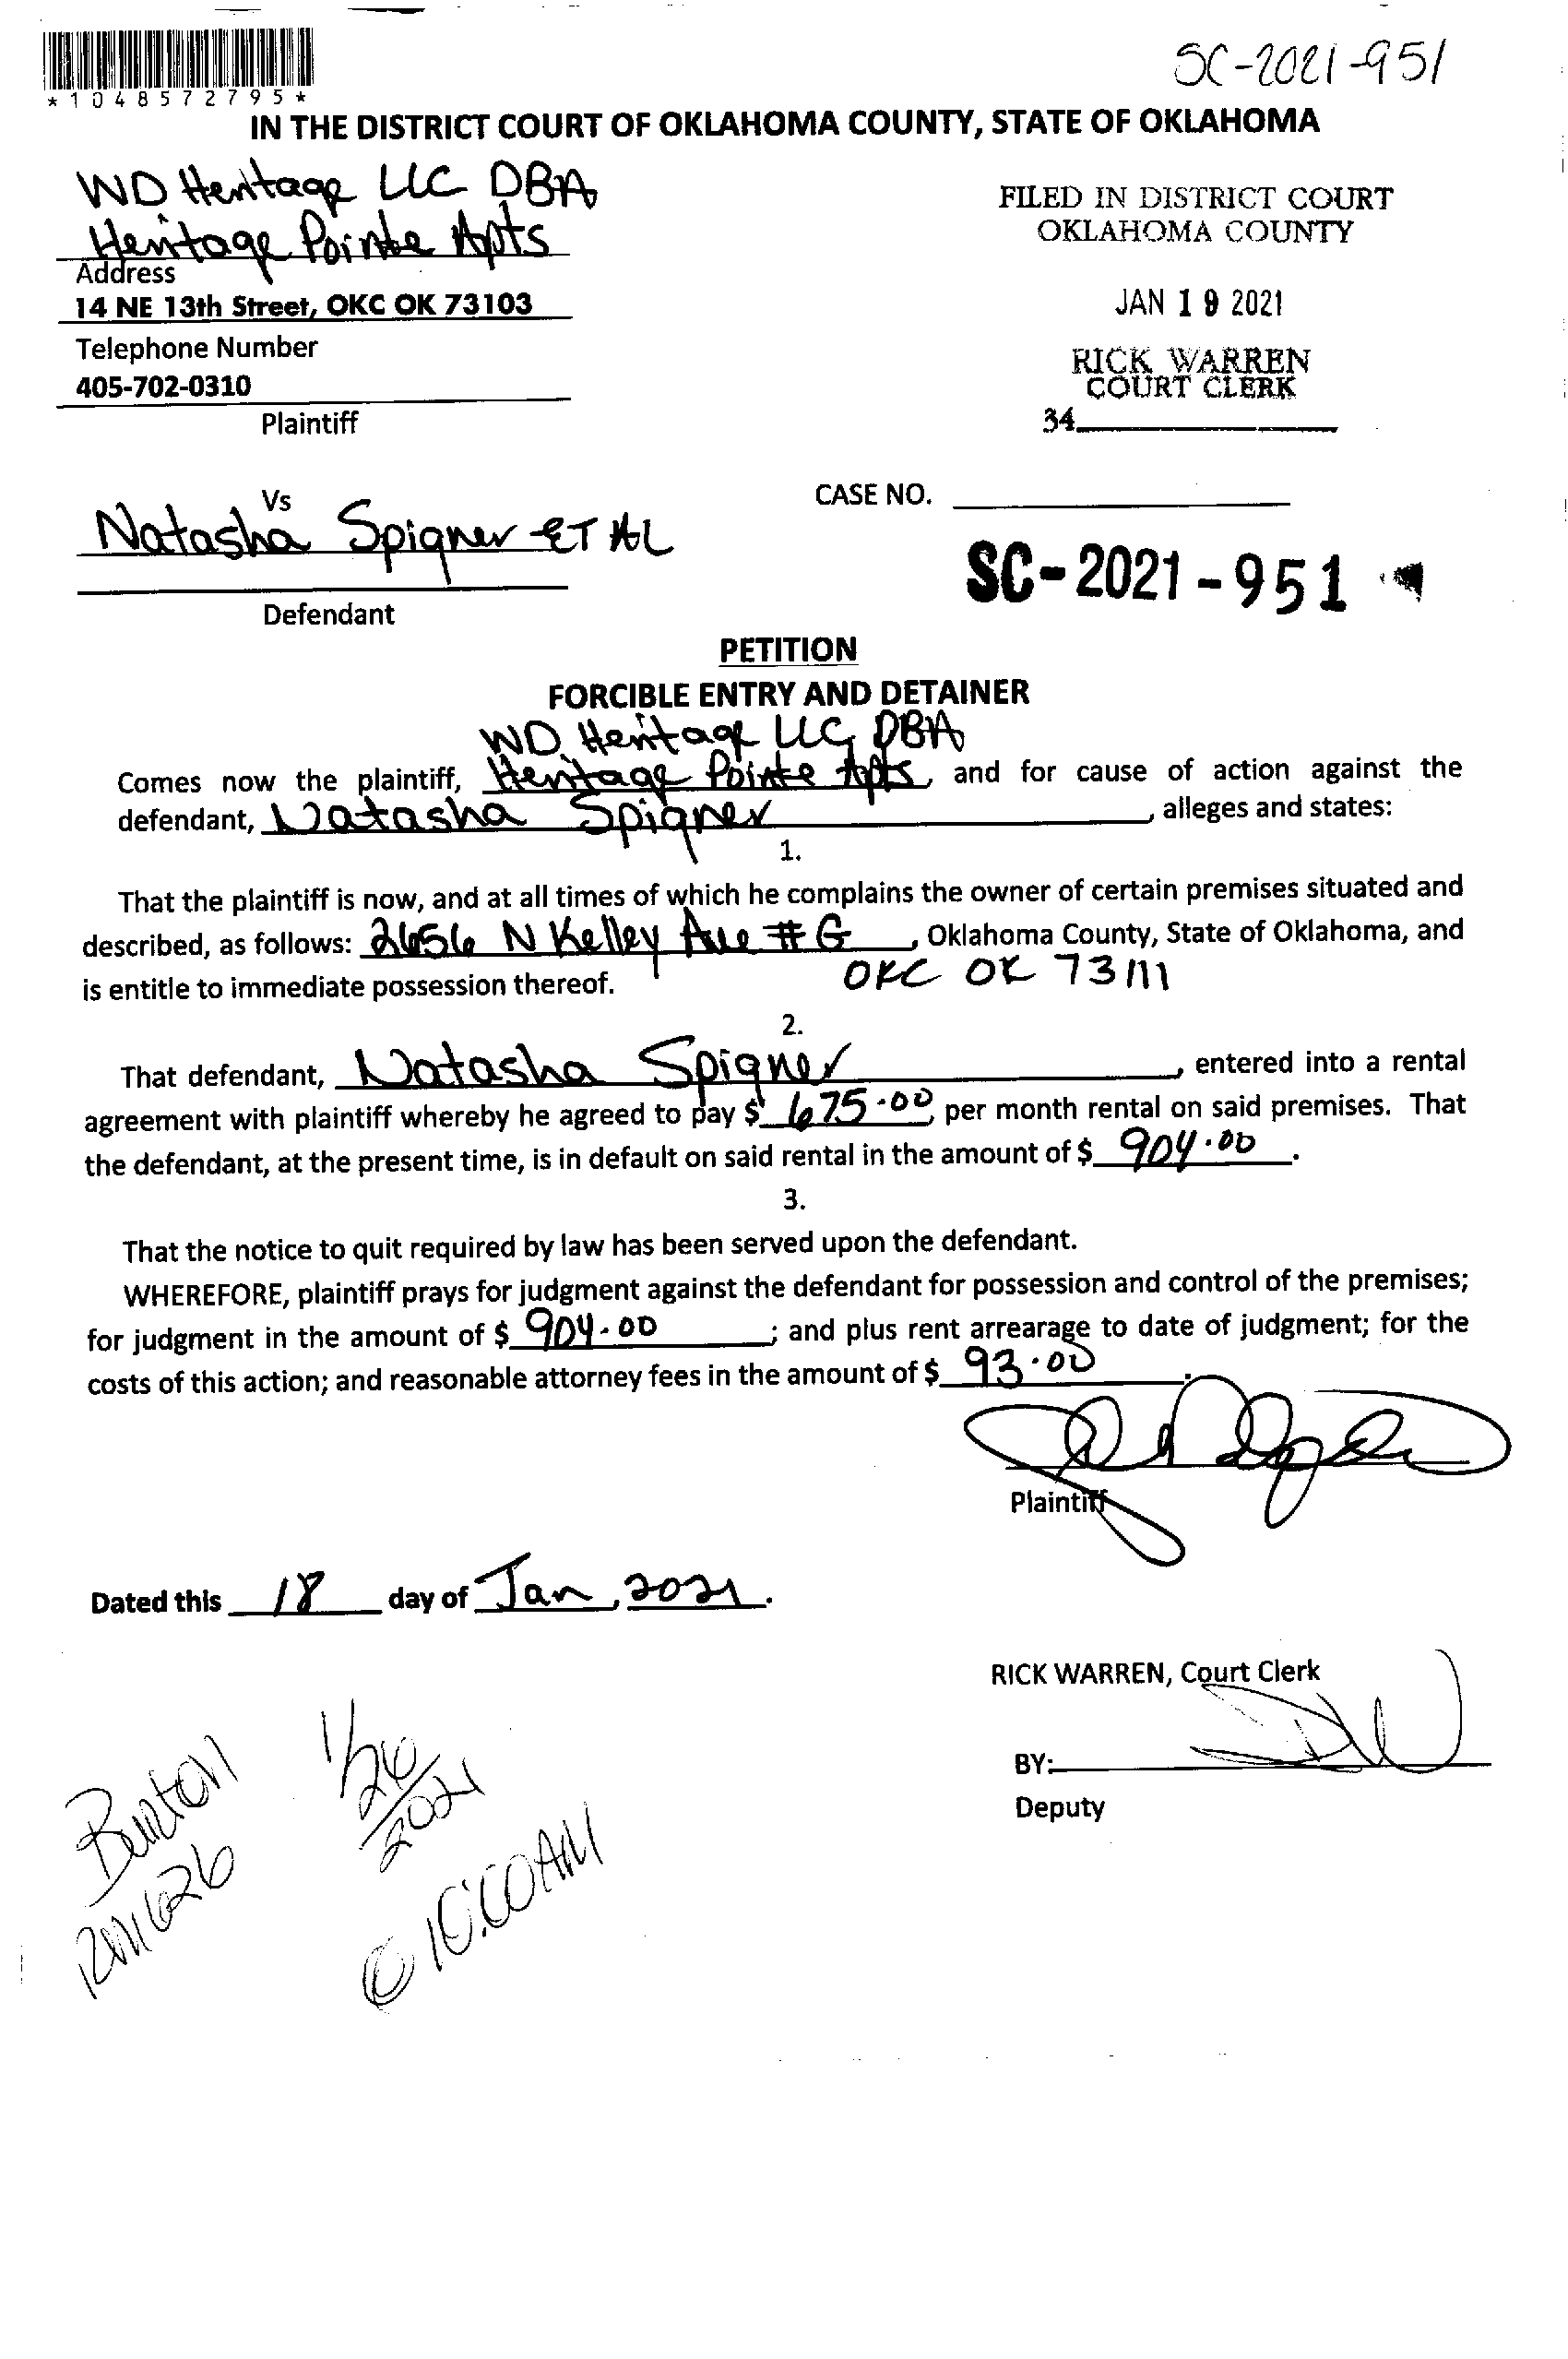 *1048572795*
SC-2021-951
IN THE DISTRICT COURT OF OKLAHOMA COUNTY, STATE OF OKLAHOMA
WD Heritage LLC DBA
Heritage Pointe Apts
Address
14 NE 13th Street, OKC OK 73103
Telephone Number
405-702-0310
Plaintiff
FILED IN DISTRICT COURT
OKLAHOMA COUNTY
JAN 19 2021
RICK WARREN
COURT CLERK
34
Vs
Natasha Spigner ET AL
Defendant
CASE NO.
SC-2021-951
PETITION
FORCIBLE ENTRY AND DETAINER
WD Heritage LLC, DBA
Comes now the plaintiff, Heritage Pointe Apts, and for cause of action against the
defendant, Natasha Spigner, alleges and states:
1.
That the plaintiff is now, and at all times of which he complains the owner of certain premises situated and
described, as follows: 2656 N Kelley Ave #G, Oklahoma County, State of Oklahoma, and
is entitle to immediate possession thereof. OKC OK 73111
2.
That defendant, Natasha Spigner, entered into a rental
agreement with plaintiff whereby he agreed to pay $ 675.00, per month rental on said premises. That
the defendant, at the present time, is in default on said rental in the amount of $ 904.00.
3.
That the notice to quit required by law has been served upon the defendant.
WHEREFORE, plaintiff prays for judgment against the defendant for possession and control of the premises;
for judgment in the amount of $ 904.00; and plus rent arrearage to date of judgment; for the
costs of this action; and reasonable attorney fees in the amount of $ 93.00.
Plaintiff
Dated this 18 day of Jan, 2021.
RICK WARREN, Court Clerk
BY:
Deputy
Burton
RM 626
1/26
2021
@ 10:00AM